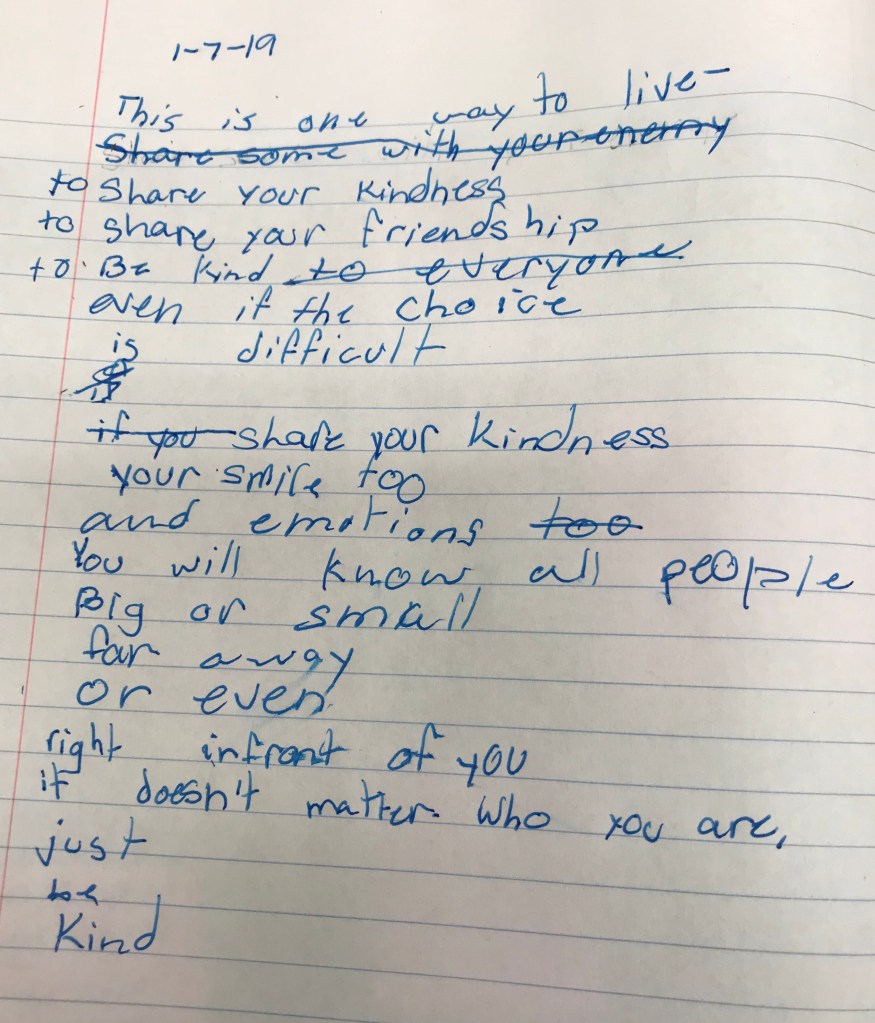 1-7-19
This is one way to live-
Share some with your enemy
to Share your kindness
to share your friendship
to Be kind to everyone
even if the choice
is difficult
if you share your kindness
your smile too
and emotions too
You will know all people
Big or small
far away
or even
right infront of you
it doesn't matter who you are,
just
be
Kind